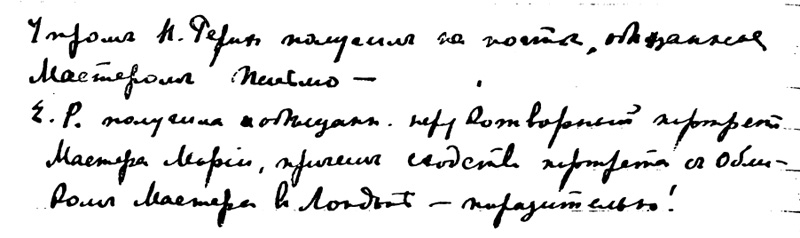 Утромъ Н. Рерих получилъ на почтѣ, обѣщанное
Мастеромъ письмо —
Е. Р. получила обѣщанн. нерукотворный портретъ
Мастера Моріи, причемъ сходство портрета съ Обли-
комъ Мастера въ Лондонѣ — поразительно!